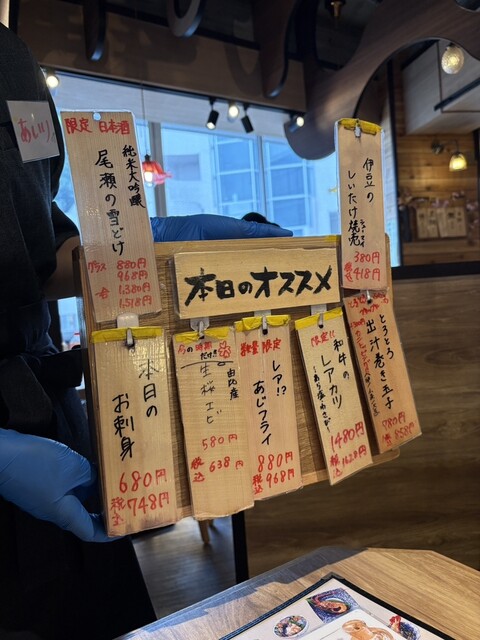 あいり
限定 日本酒
純米大吟醸
尾瀬の雪どけ
グラス 880円
968円
一合 1,380円
1,518円
伊豆の
しいたけ焼売
380円
税込418円
本日のオススメ
本日の
お刺身
680円
税込748円
今の時期だけ!!
由比産
生桜エビ
580円
税込638円
数量限定
レア!?
あじフライ
880円
税込968円
限定!!
和牛の
レアカツ
1480円
税込1628円
とろとろ
出汁巻き玉子
780円
税込858円